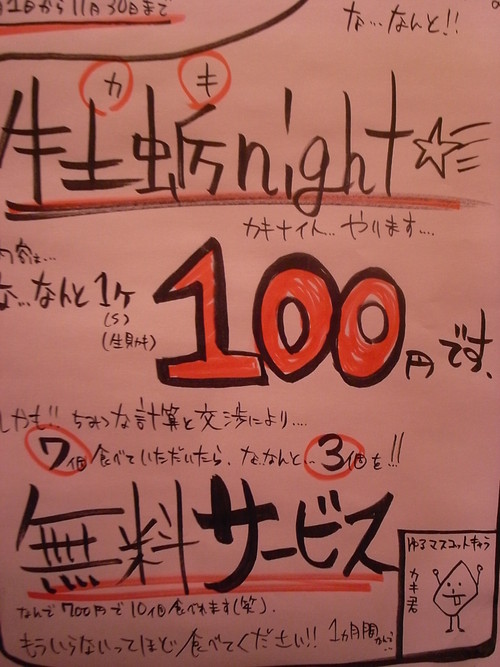 月1日から11月30日まで
な…なんと!!
カ キ
牡蛎night☆
カキナイト…やります…
内容は…
な…なんと1ケ
(S)
(生食用)
100円です、
しかも!! ちみつな計算と交渉により…
7個食べていただいたら、な…なんと…3個を!!
無料サービス
なんで700円で10個食べれます(笑).
もういらないってほど食べてください!! 1カ月間
ゆるマスコットキャラ
カキ君